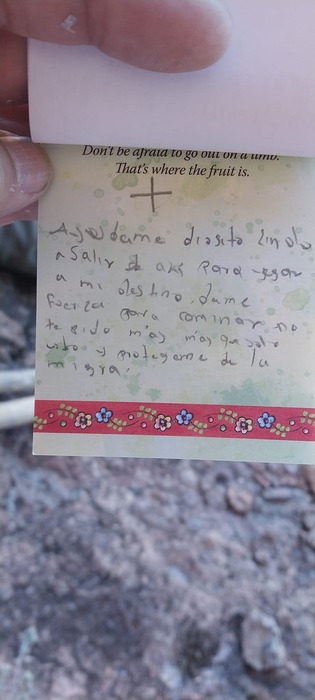 Don't be afraid to go out on a limb.
That's where the fruit is.
Ayudame diosito lindo
a Salir de aki Para yegar
a mi destino. dame
fuerza para caminar no
te pido mas mas que solo
y protegeme de la
migra.